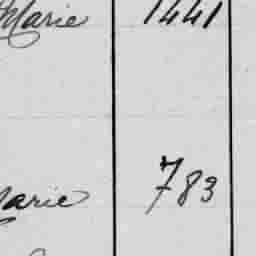 Marie 1441
Marie 783